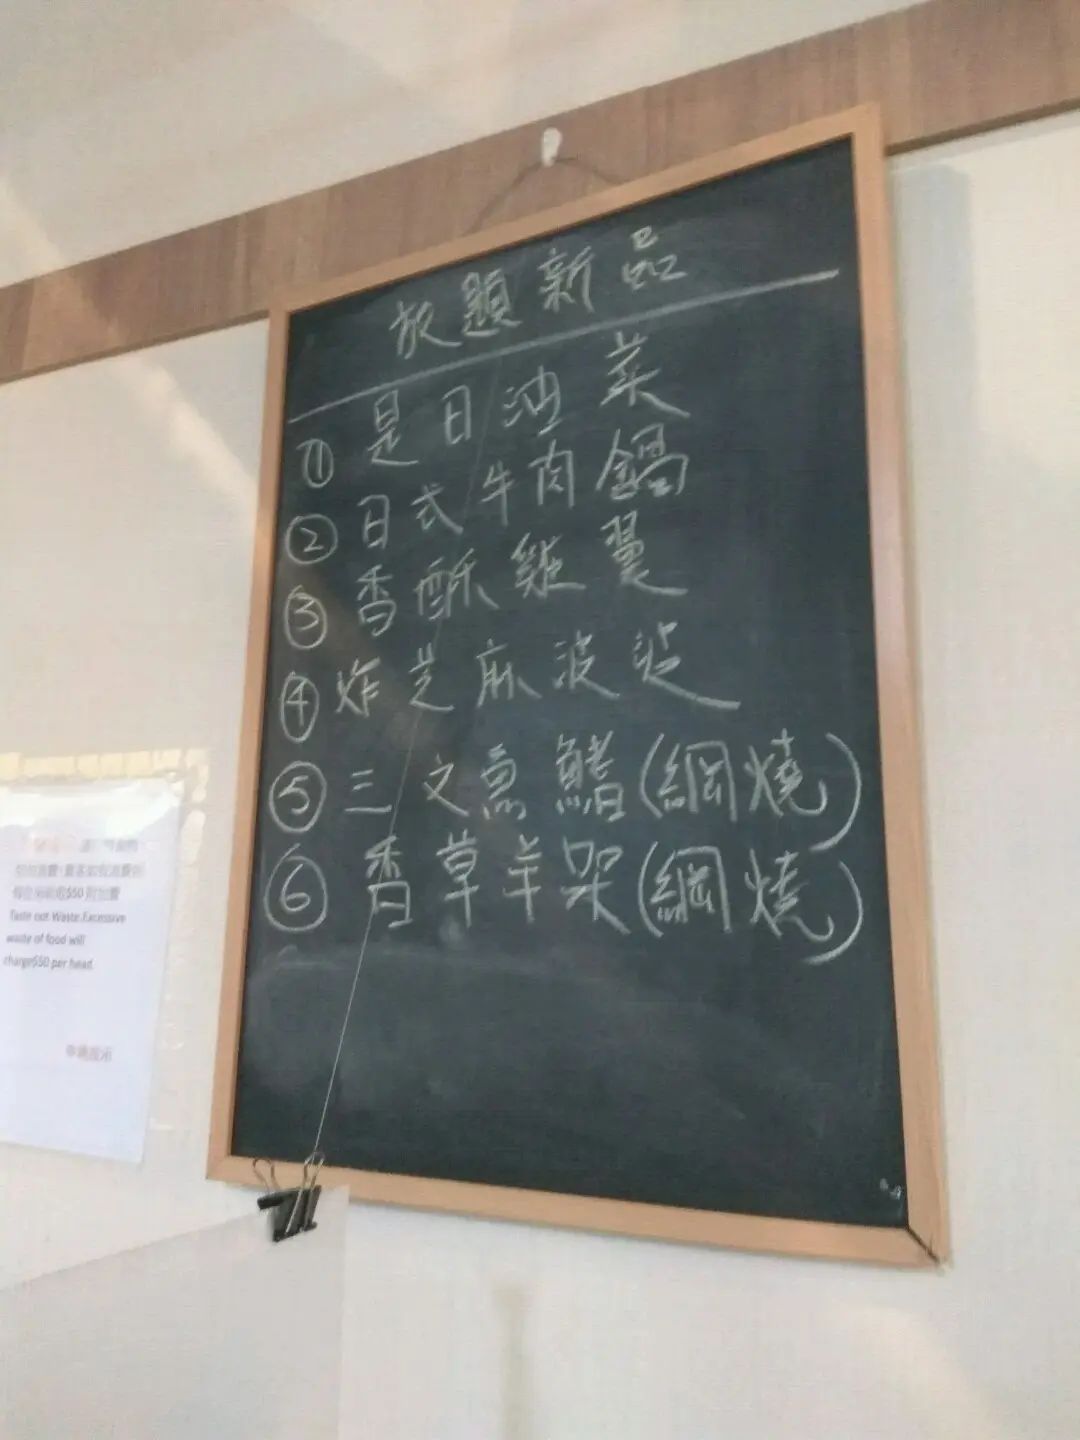 放題新品
① 是日油菜
② 日式牛肉鍋
③ 香酥雞翼
④ 炸芝麻波波
⑤ 三文魚鰭(網燒)
⑥ 香草羊架(網燒)
$50
Taste not Waste.Excessive
waste of food will
charge$50 per head.